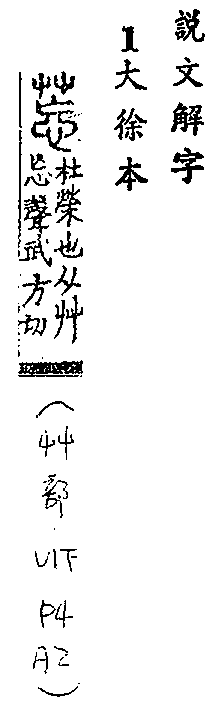 説文解字
1大徐本
莣
杜榮也从艸
忘聲武方切
(艸部 V1下 P4 A2)